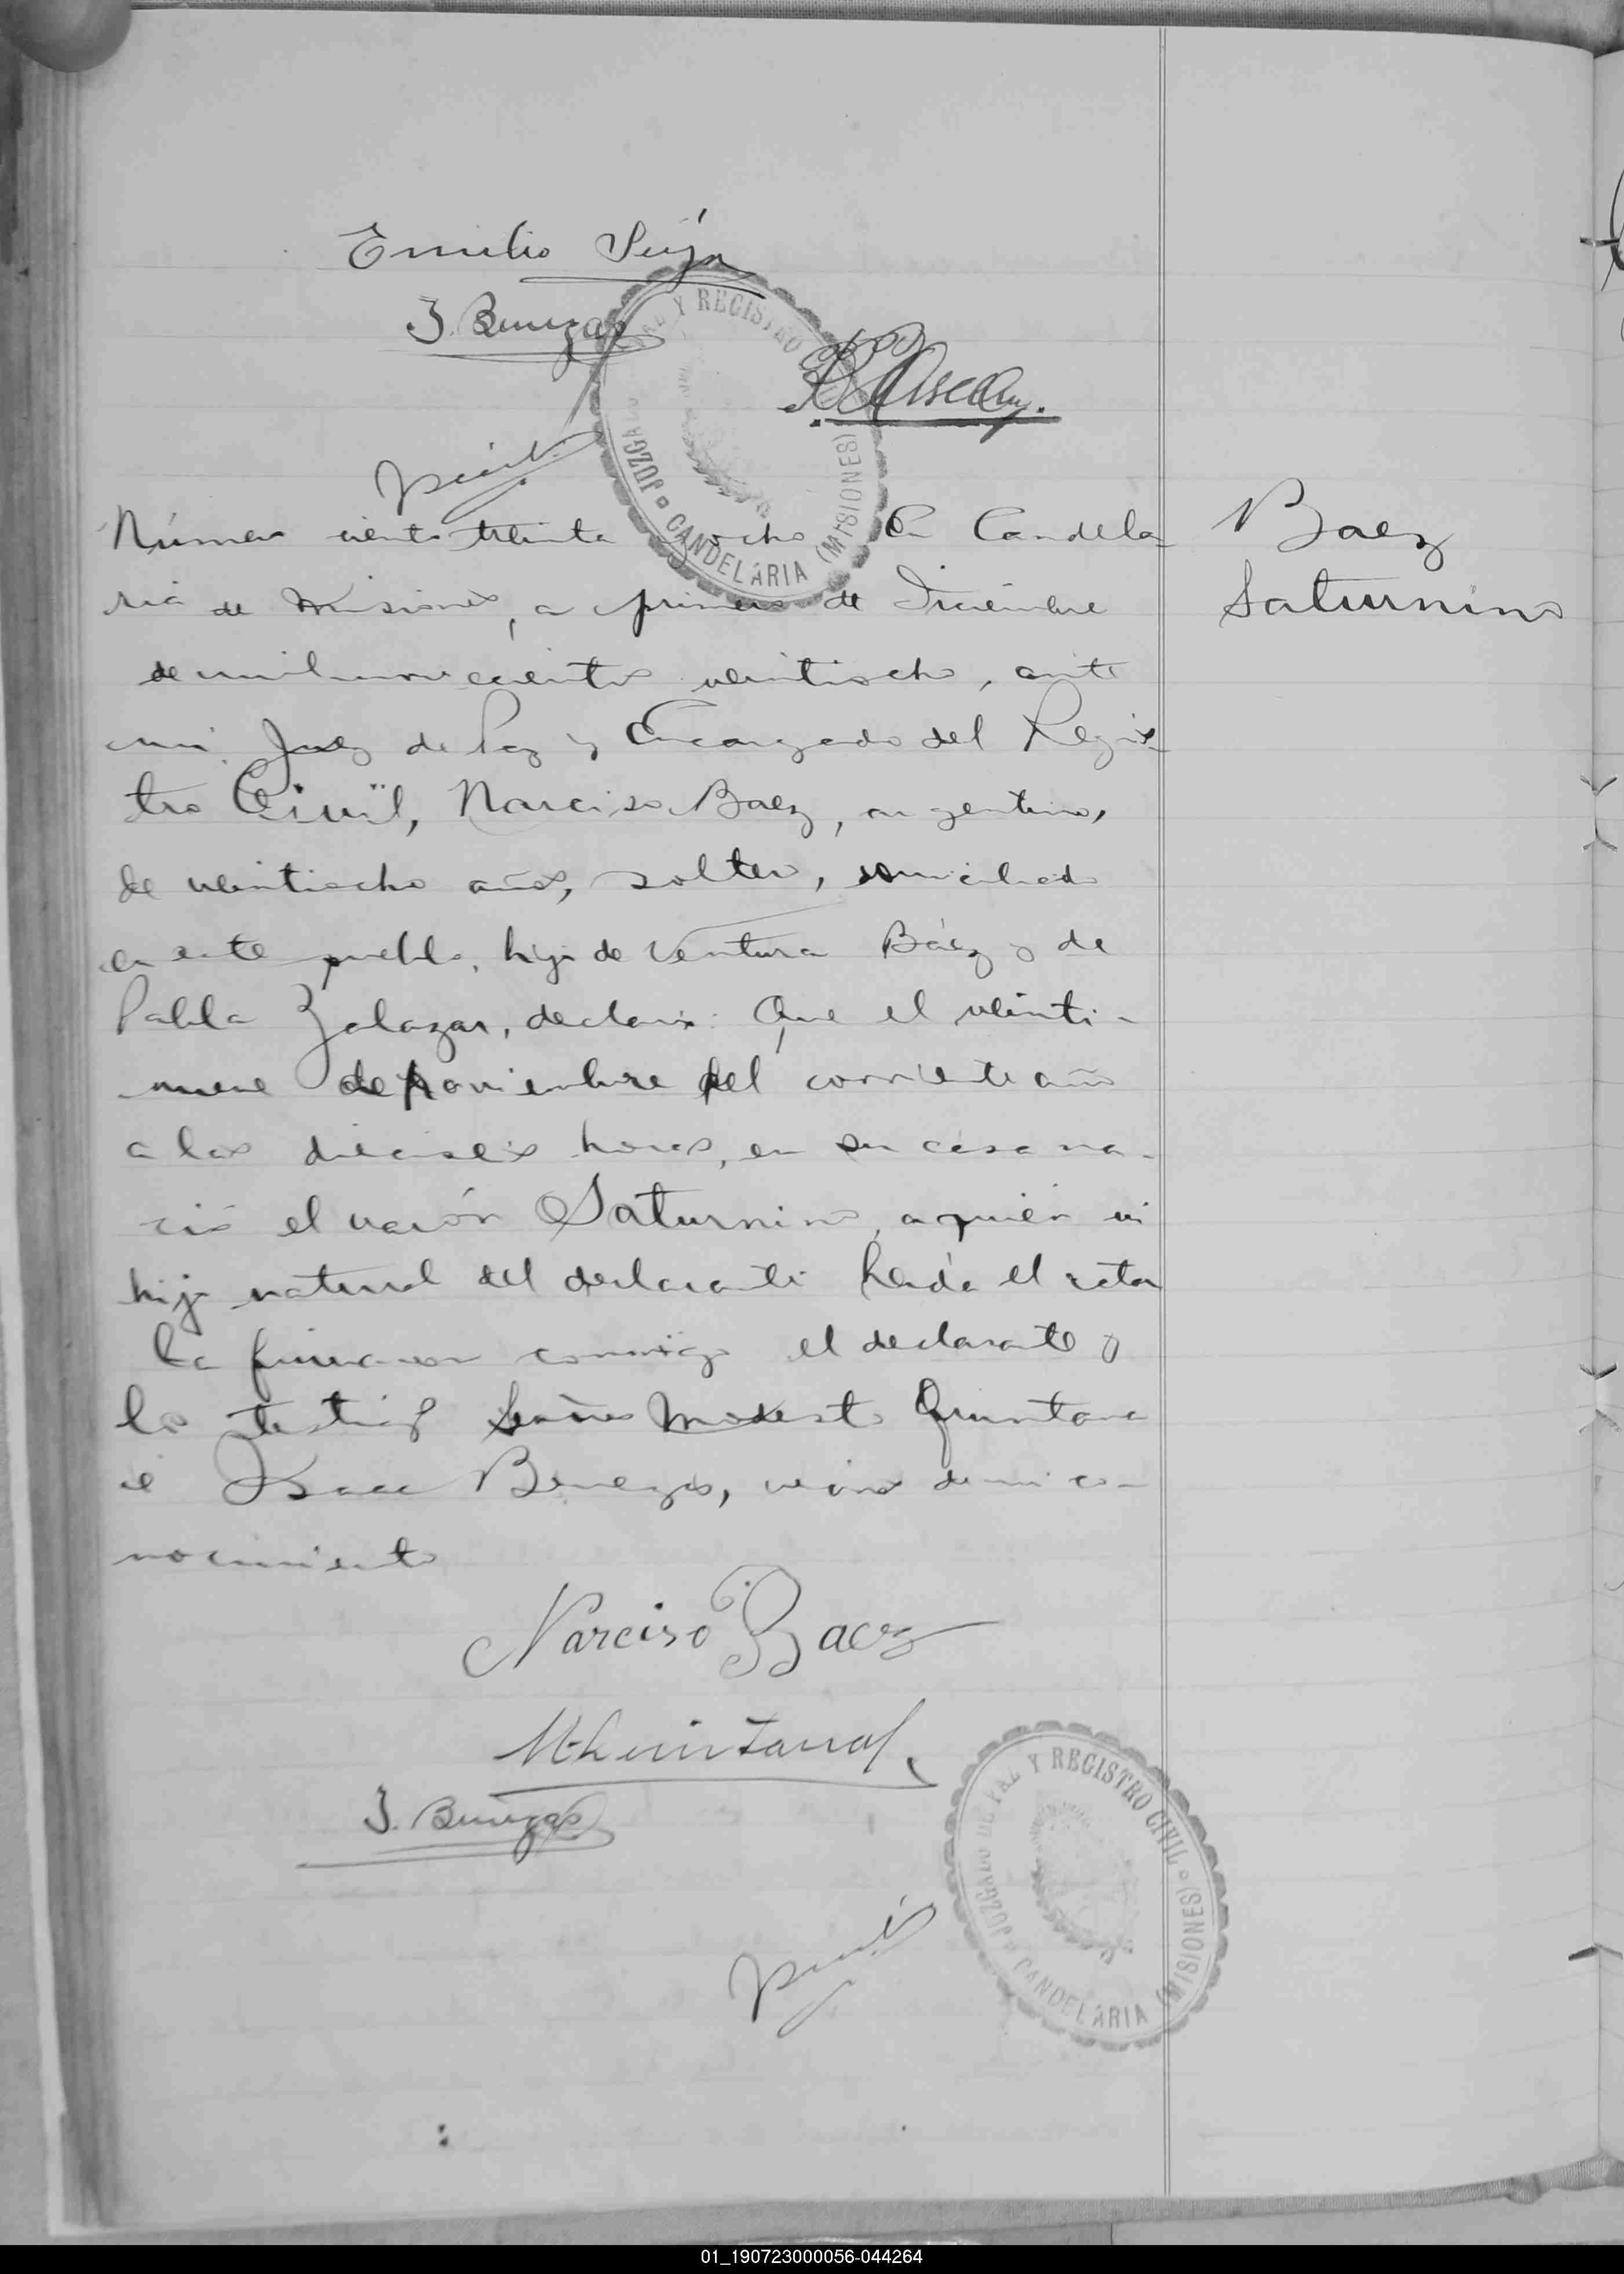 Emilio
J. Benegas
JUZGADO DE PAZ Y REGISTRO CIVIL
CANDELARIA (MISIONES)
Número ciento treinta y ocho En Candela-
ria de Misiones, a primero de Diciembre
de mil novecientos veintiocho, ante
mi Juez de Paz y Encargado del Regis-
tro Civil, Narciso Baez, argentino,
de veintiocho años, soltero, domiciliado
en este pueblo, hijo de Ventura Báez y de
Pabla Zalazar, declara: Que el veinti-
nueve de Noviembre del corriente año
a las dieciseis horas, en su casa na-
ció el varón Saturnino, a quien vi
hijo natural del declarante Leida el acta
la firmaron conmigo el declarante y
los testigos Señores Modesto Quintana
é Isaac Benegas, vecinos de mi co-
nocimiento
Baez
Saturnino
Narciso Baez
M. Quintana
J. Benegas
JUZGADO DE PAZ Y REGISTRO CIVIL
CANDELARIA (MISIONES)
01_190723000056-044264